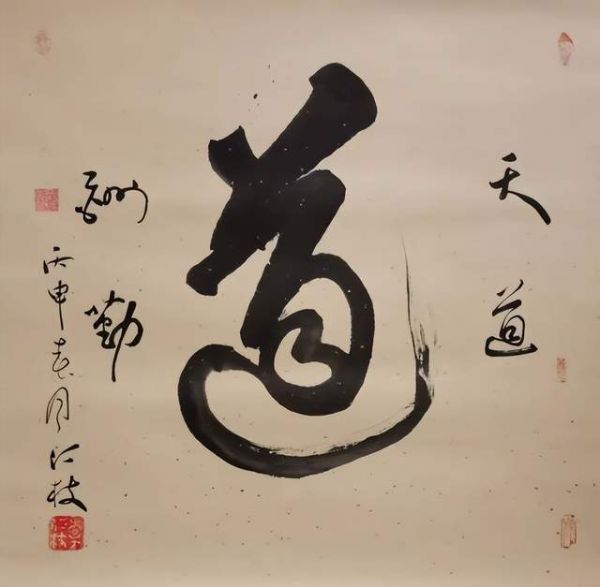 天道
道
酬勤
丙申春月仁枝